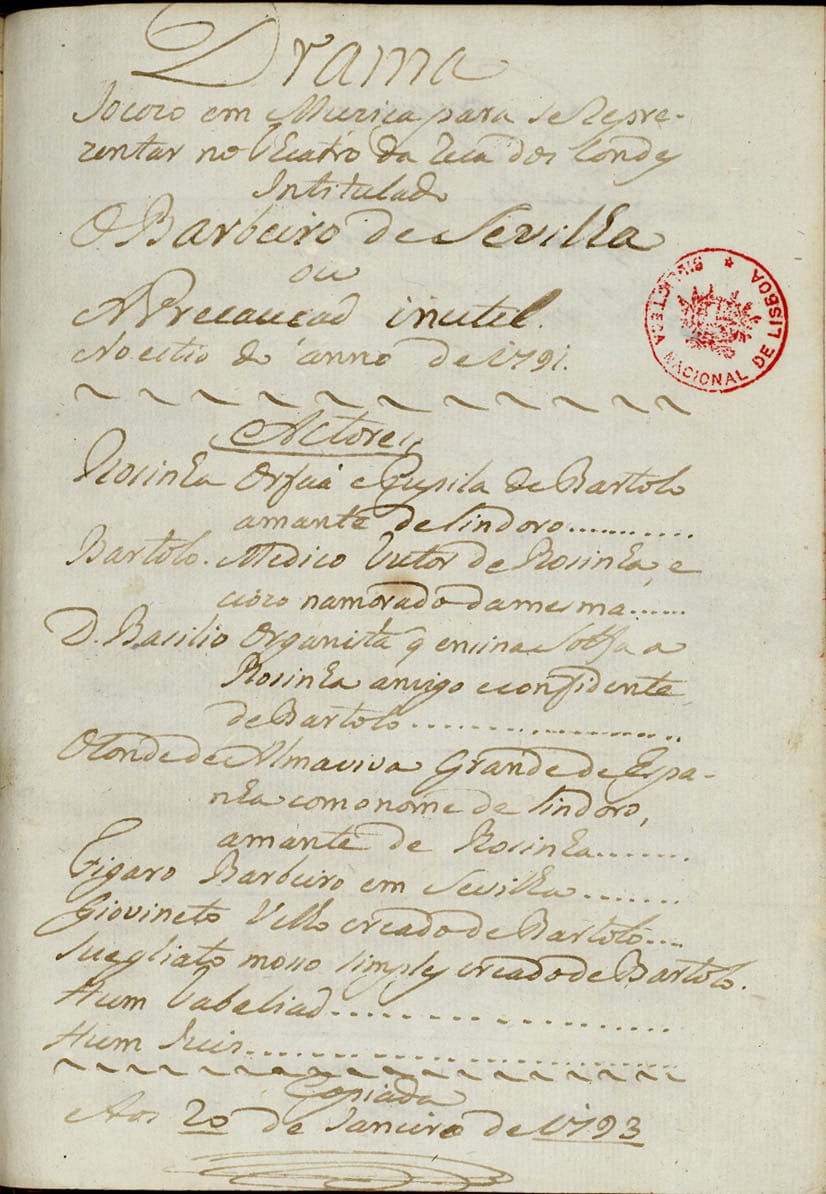 Drama
Jocozo em Muzica para se Repre-
zentar no Theatro da Rua dos Condes
Intitulado
O Barbeiro de Sevilha
ou
A Precaucaõ inutel.
No estio do anno de 1791.
Actores,
Rosinha Orfaã e Pupila de Bartolo
amante de Lindoro...........
Bartolo. Medico Tutor de Rosinha, e
ciozo namorado da mesma......
D. Basilio Organista q ensina Solfa a
Rosinha amigo e confidente
de Bartolo....................
O Conde de Almaviva Grande de Espa-
nha com o nome de Lindoro,
amante de Rosinha........
Figaro Barbeiro em Sevilha........
Giovineto Velho creado de Bartolo....
Suegliato moso simples creado de Bartolo.
Hum Tabeliaõ......................
Hum Juis.........................
Copiada
Aos 20 de Janeiro de 1793
BIBLIOTECA NACIONAL DE LISBOA